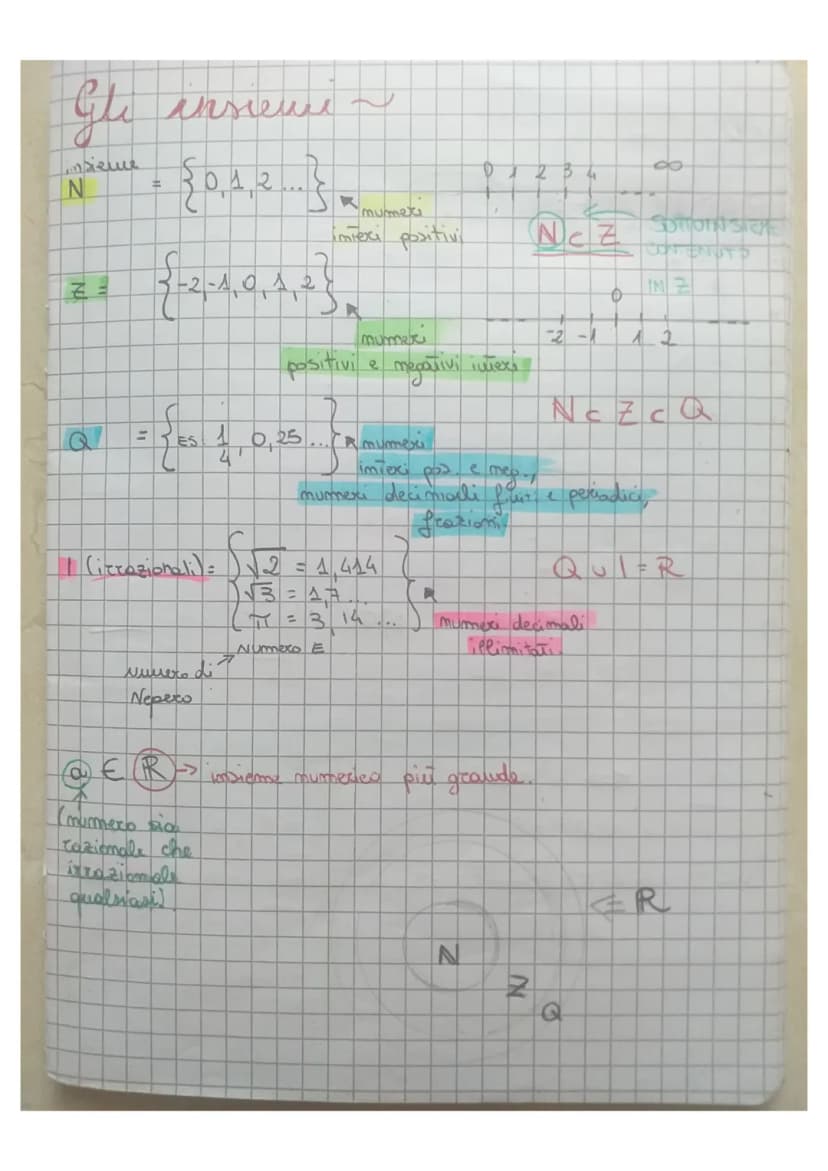 Gli insiemi ~
insieme
N = {0,1,2...}
numeri
interi positivi
0 1 2 3 4 ... ∞
N ⊂ Z
SOTTOINSIEME
CONTENUTO
IN Z
Z = {-2,-1,0,1,2}
numeri
positivi e negativi interi
0
-2 -1 1 2
N ⊂ Z ⊂ Q
Q = {ES. 1/4, 0,25...}
numeri
interi pos. e neg.,
numeri decimali finiti e periodici,
frazioni
I (irrazionali) = {√2 = 1,414
√3 = 1,7...
π = 3,14 ...}
Q ∪ I = R
numeri decimali
illimitati.
Numero E
Numero di
Nepero
a ∈ R → insieme numerico più grande.
(numero sia
razionale che
irrazionale
qualsiasi)
⇐ R
N
Z
Q